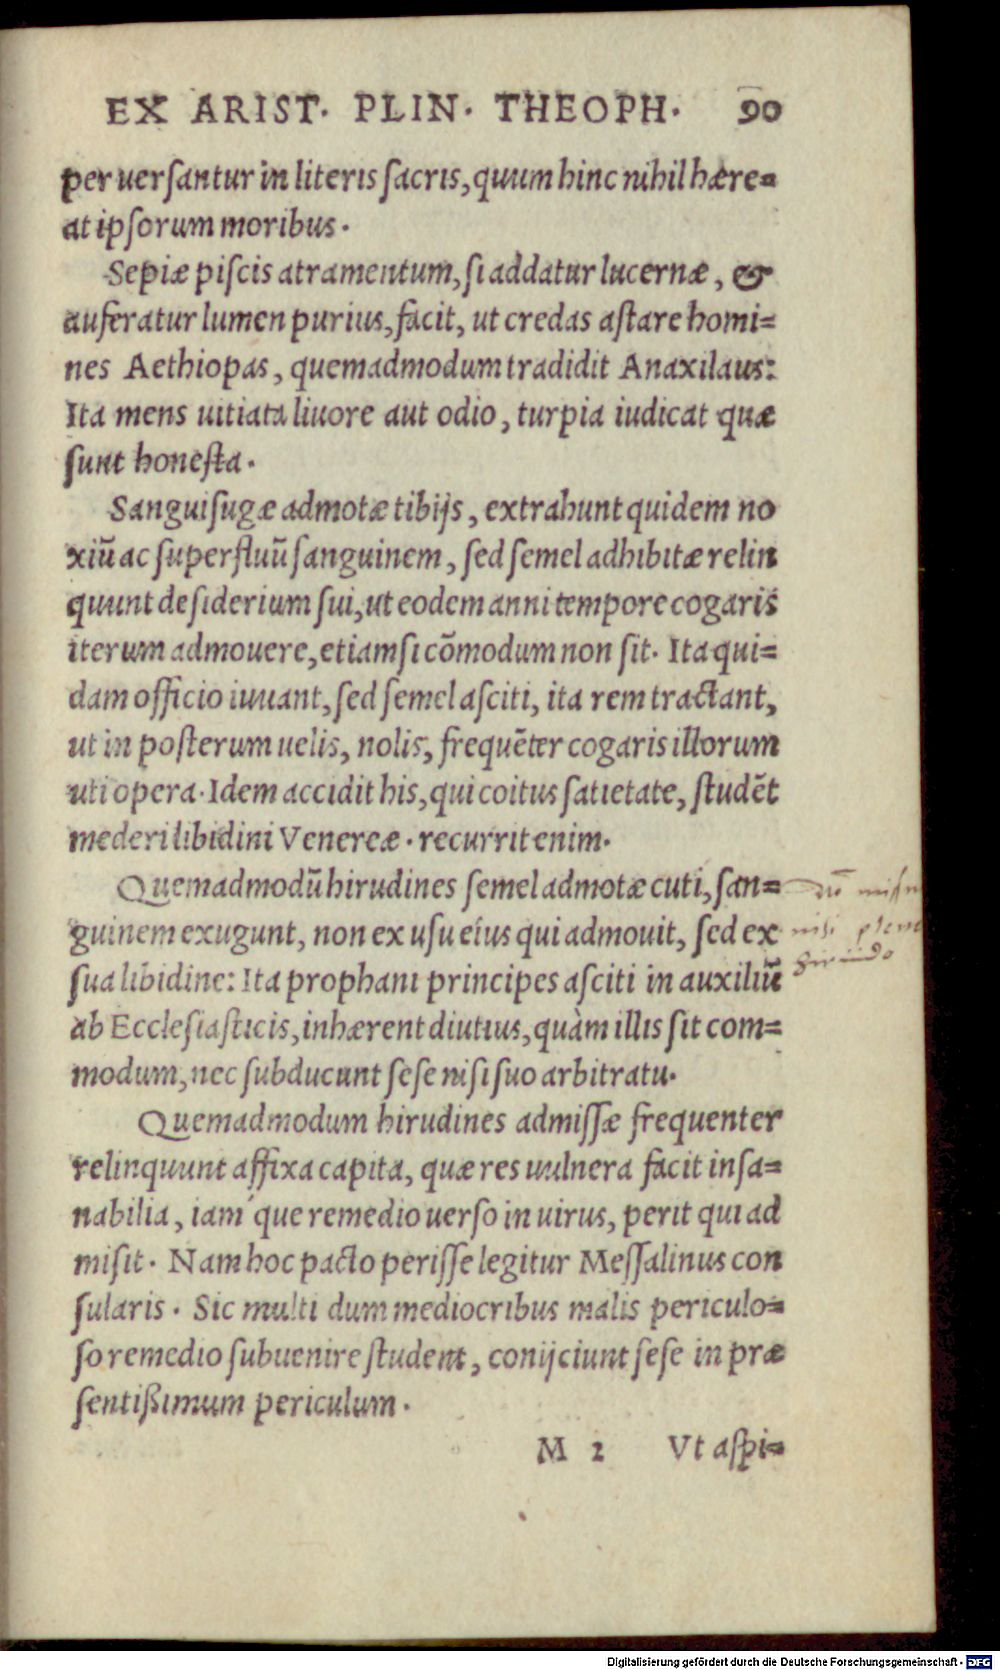 EX ARIST. PLIN. THEOPH. 90
per uersantur in literis sacris, quum hinc nihil hære=
at ipsorum moribus.
Sepiæ piscis atramentum, si addatur lucernæ, &
auferatur lumen purius, facit, ut credas astare homi=
nes Aethiopas, quemadmodum tradidit Anaxilaus:
Ita mens uitiata liuore aut odio, turpia iudicat quæ
sunt honesta.
Sanguisugæ admotæ tibijs, extrahunt quidem no
xiũ ac superfluũ sanguinem, sed semel adhibitæ relin
quunt desiderium sui, ut eodem anni tempore cogaris
iterum admouere, etiamsi cõmodum non sit. Ita qui=
dam officio iuuant, sed semel asciti, ita rem tractant,
ut in posterum uelis, nolis, frequẽter cogaris illorum
uti opera. Idem accidit his, qui coitus satietate, studẽt
mederi libidini Venereæ. recurrit enim.
Quemadmodũ hirudines semel admotæ cuti, san=
guinem exugunt, non ex usu eius qui admouit, sed ex
sua libidine: Ita prophani principes asciti in auxiliũ
ab Ecclesiasticis, inhærent diutius, quàm illis sit com=
modum, nec subducunt sese nisi suo arbitratu.
nisi
hirudo
Quemadmodum hirudines admissæ frequenter
relinquunt affixa capita, quæ res uulnera facit insa=
nabilia, iam que remedio uerso in uirus, perit qui ad
misit. Nam hoc pacto perisse legitur Messalinus con
sularis. Sic multi dum mediocribus malis periculo=
so remedio subuenire student, conijciunt sese in præ
sentißimum periculum.
M 2 Vt aspi=
Digitalisierung gefördert durch die Deutsche Forschungsgemeinschaft - DFG